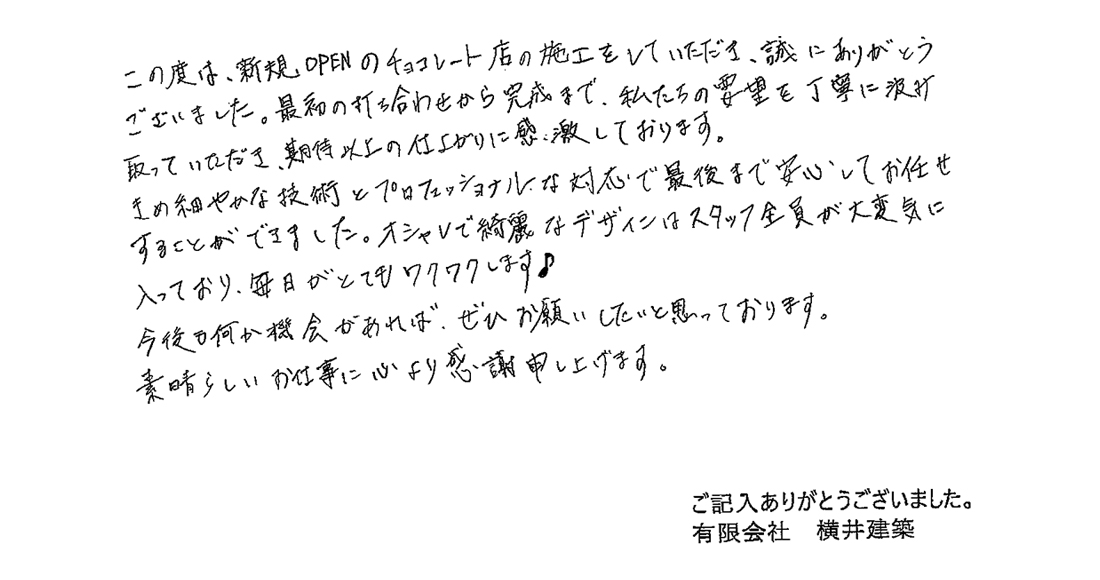 この度は、新規OPENのチョコレート店の施工をしていただき、誠にありがとう
ございました。最初の打ち合わせから完成まで、私たちの要望を丁寧に汲み
取っていただき、期待以上の仕上がりに感激しております。
きめ細やかな技術とプロフェッショナルな対応で最後まで安心してお任せ
することができました。オシャレで綺麗なデザインはスタッフ全員が大変気に
入っており、毎日がとてもワクワクします♪
今後も何か機会があれば、ぜひお願いしたいと思っております。
素晴らしいお仕事に心より感謝申し上げます。
ご記入ありがとうございました。
有限会社 横井建築